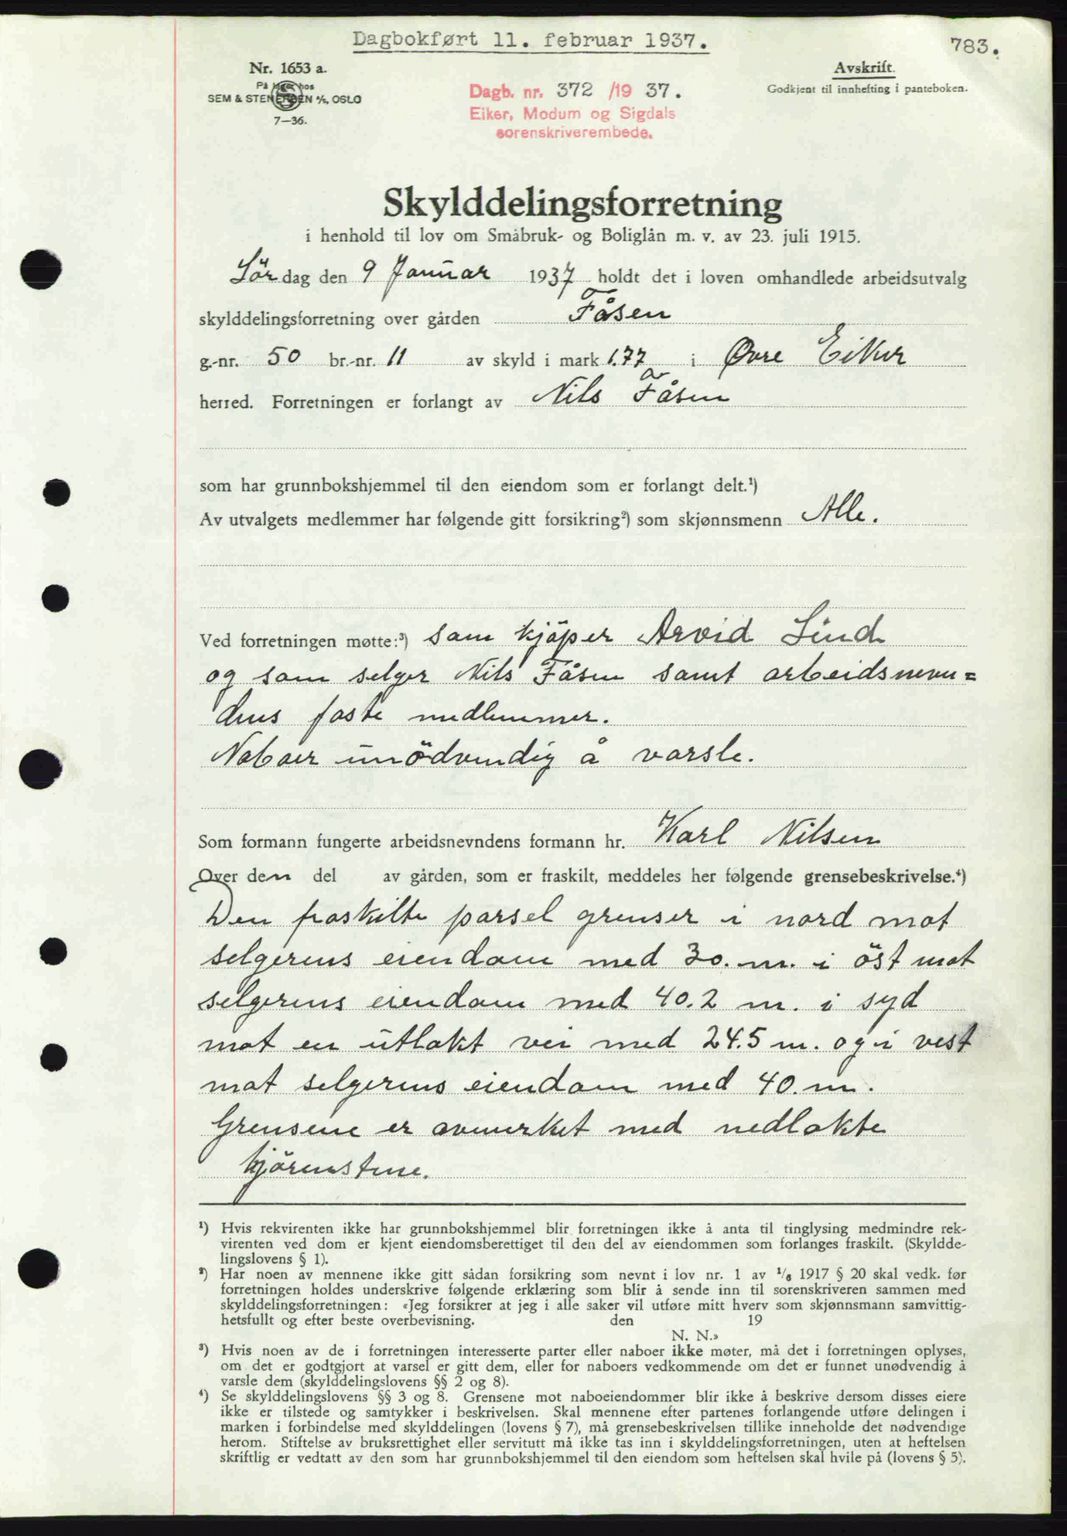 Dagbokført 11. februar 1937.
783.
Nr. 1653 a.
På lager hos
SEM & STENERSEN A/S, OSLO
7—36.
Dagb. nr. 372 /19 37.
Eiker, Modum og Sigdals
sorenskriverembede.
Avskrift.
Godkjent til innhefting i panteboken.
Skylddelingsforretning
i henhold til lov om Småbruk- og Boliglån m. v. av 23. juli 1915.
Lör dag den 9 Januar 1937 holdt det i loven omhandlede arbeidsutvalg
skylddelingsforretning over gården Fåsen
g.-nr. 50 br.-nr. 11 av skyld i mark 1.77 i Øvre Eiker
herred. Forretningen er forlangt av Nils Fåsen
som har grunnbokshjemmel til den eiendom som er forlangt delt.¹)
Av utvalgets medlemmer har følgende gitt forsikring²) som skjønnsmenn Alle.
Ved forretningen møtte:³) Som kjöper Arvid Lund
og som selger Nils Fåsen samt arbeidsnevn=
dens faste medlemmer.
Naboer unödvendig å varsle.
Som formann fungerte arbeidsnevndens formann hr. Karl Nilsen
Over den del av gården, som er fraskilt, meddeles her følgende grensebeskrivelse.⁴)
Den fraskilte parsel grenser i nord mot
selgerens eiendom med 30. m. i öst mot
selgerens eiendom med 40.2 m. i syd
mot en utlakt vei med 24.5 m. og i vest
mot selgerens eiendom med 40. m.
Grensene er avmerket med nedlakte
hjörnestene.
¹) Hvis rekvirenten ikke har grunnbokshjemmel blir forretningen ikke å anta til tinglysing medmindre rek-
virenten ved dom er kjent eiendomsberettiget til den del av eiendommen som forlanges fraskilt. (Skyldde-
lingslovens § 1).
²) Har noen av mennene ikke gitt sådan forsikring som nevnt i lov nr. 1 av ¹/₆ 1917 § 20 skal vedk. før
forretningen holdes underskrive følgende erklæring som blir å sende inn til sorenskriveren sammen med
skylddelingsforretningen: «Jeg forsikrer at jeg i alle saker vil utføre mitt hverv som skjønnsmann samvittig-
hetsfullt og efter beste overbevisning. den 19
N. N.»
³) Hvis noen av de i forretningen interesserte parter eller naboer ikke møter, må det i forretningen oplyses,
om det er godtgjort at varsel er gitt dem, eller for naboers vedkommende om det er funnet unødvendig å
varsle dem (skylddelingslovens §§ 2 og 8).
⁴) Se skylddelingslovens §§ 3 og 8. Grensene mot naboeiendommer blir ikke å beskrive dersom disses eiere
ikke er tilstede og samtykker i beskrivelsen. Skal mennene efter partenes forlangende utføre delingen i
marken i forbindelse med skylddelingen (lovens § 7), må grensebeskrivelsen tillike inneholde det nødvendige
herom. Stiftelse av bruksrettighet eller servitutt må ikke tas inn i skylddelingsforretningen, uten at heftelsen
skriftlig er vedtatt av den som har grunnbokshjemmel til den eiendom som heftelsen skal hvile på (lovens § 5).